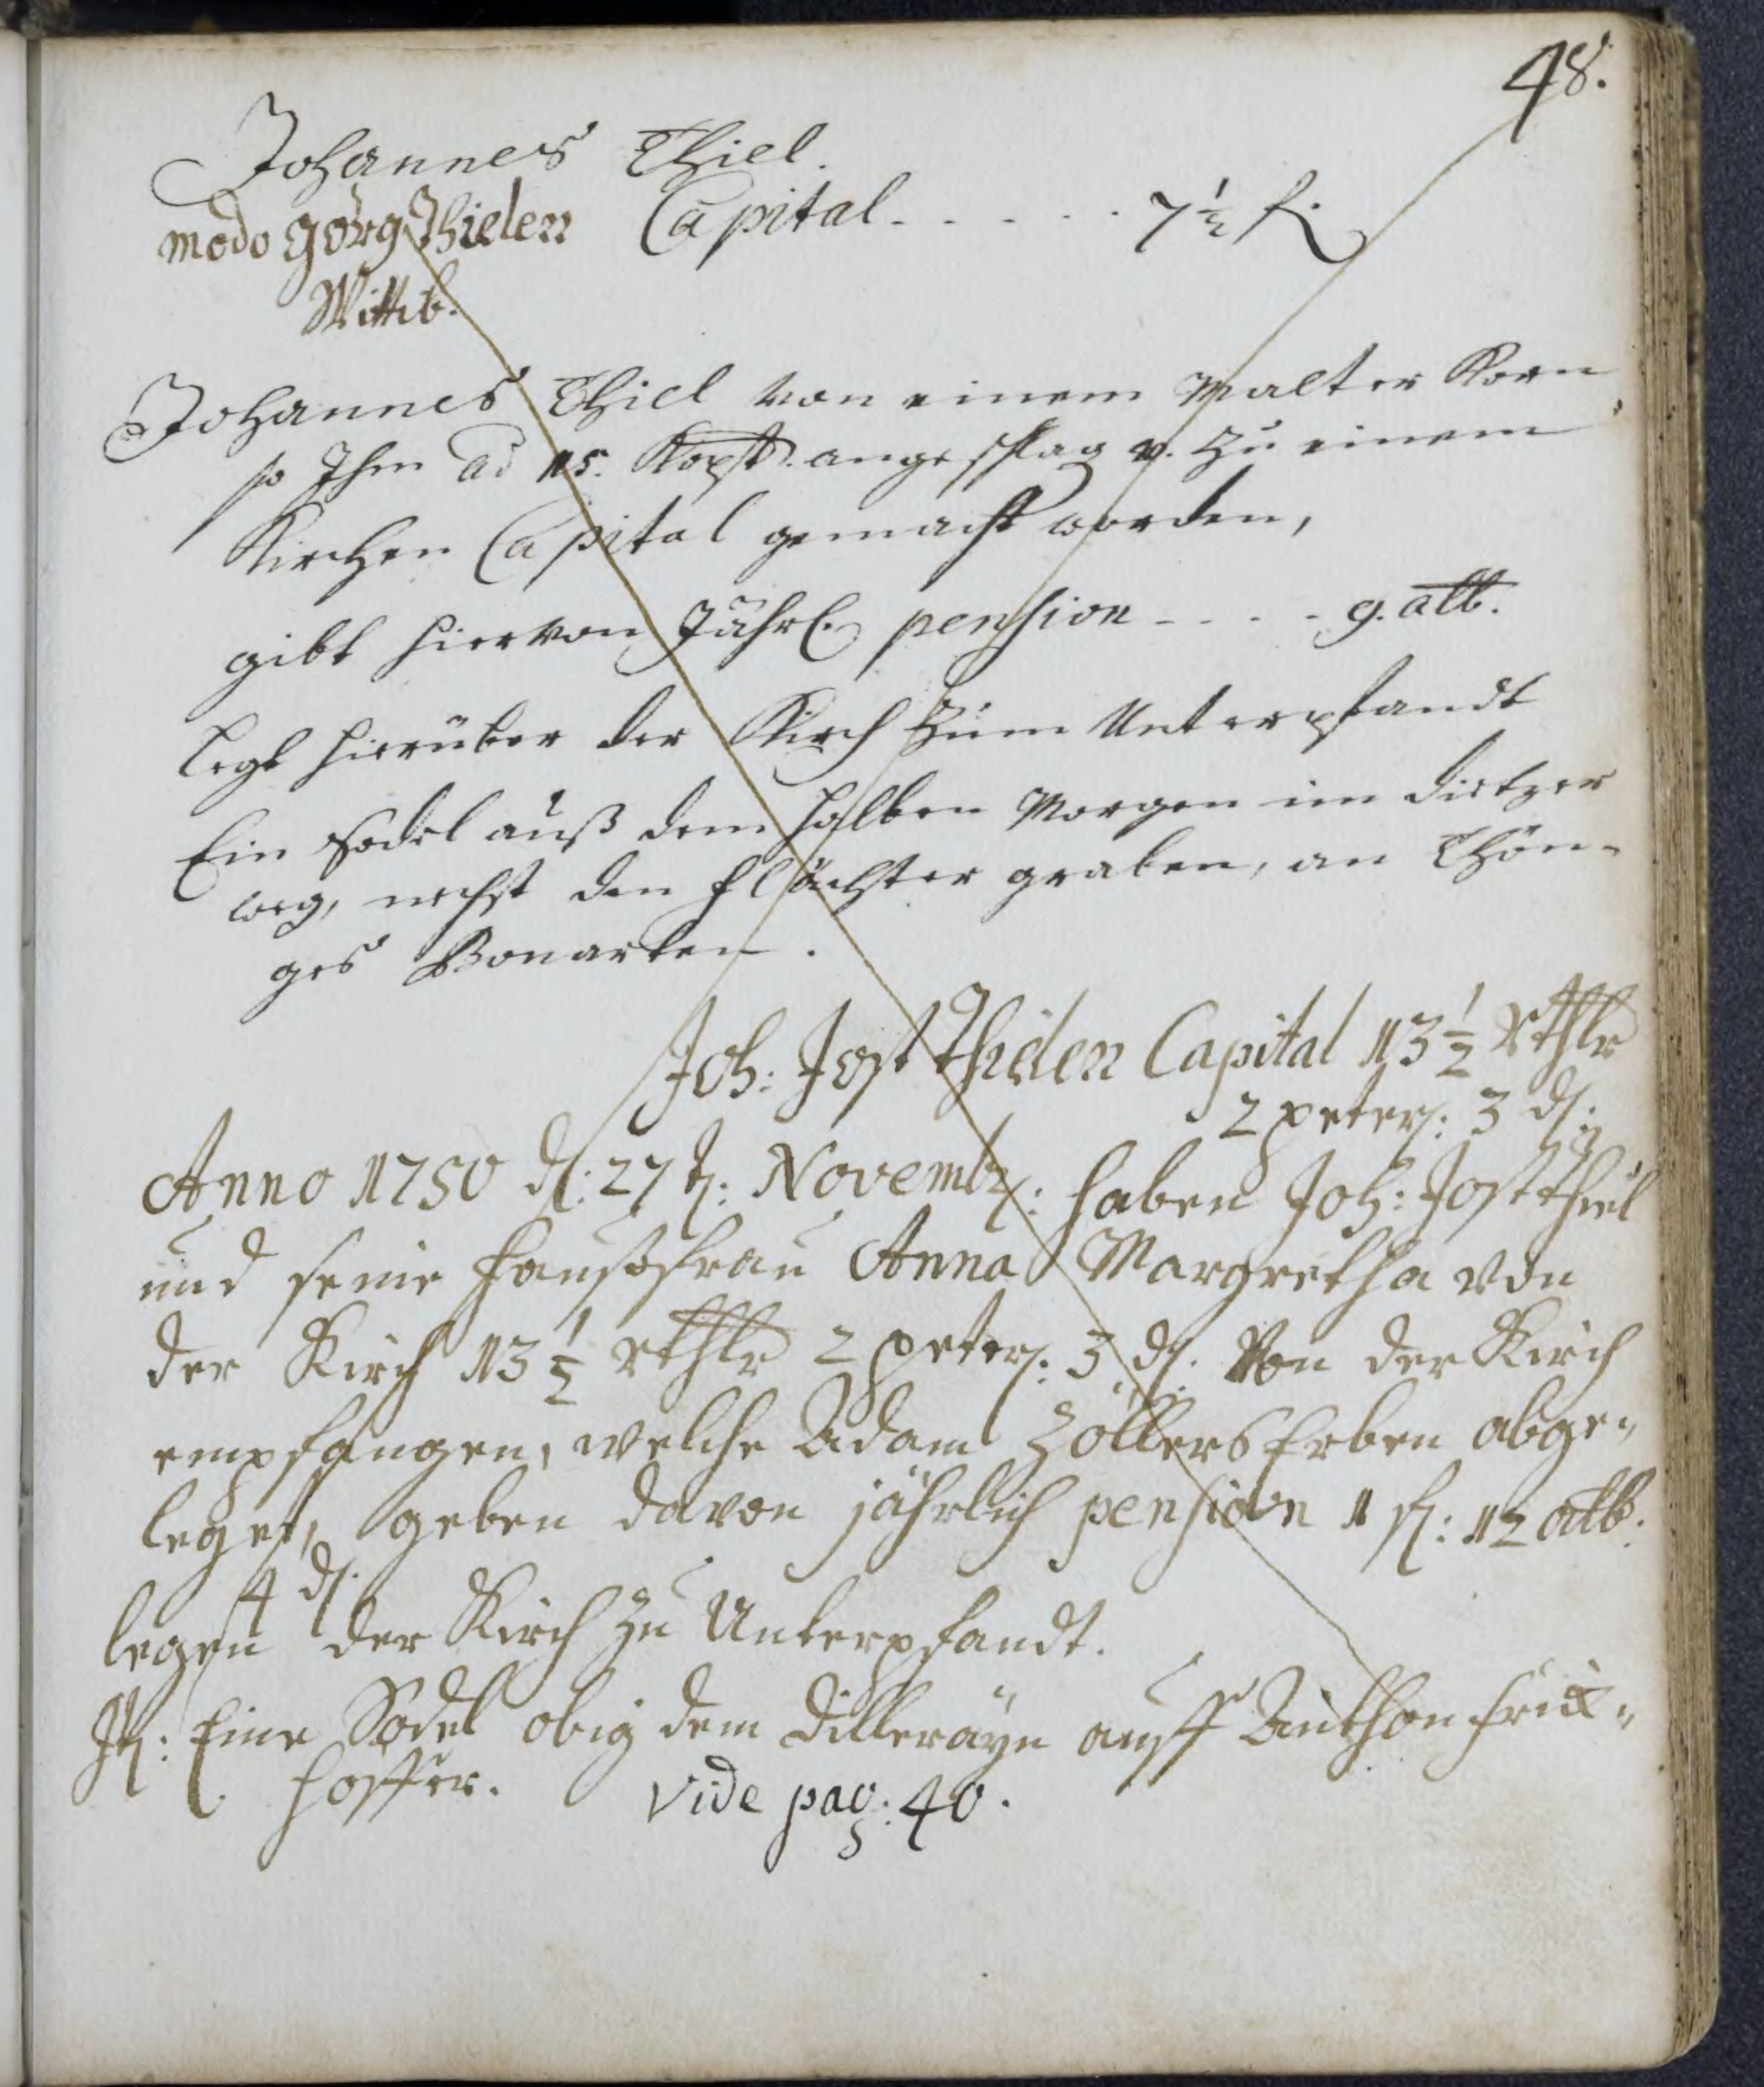 48.
Johannes Thiel.
modo Görg Thielen Capital - - - - - 7 1/2 fl.
Wittib.
Johannes Thiel von einem Malter Korn
so Ihm ad 15. Kopst. angeschlag v. zu einem
Kirchen Capital gemacht worden,
gibt hiervon Jährl. pension - - - - 9. alb.
legt hierüber der Kirch zum Unterpfandt
Ein sodel auß dem halben Morgen im dietzer
weg, nechst den flächter graben, an Thön-
ges Bonarten.
Joh: Jost Thielen Capital 13 1/2 Rthlr
2 peter: 3 d:
Anno 1750 d: 27t: Novembr: haben Joh: Jost thiel
und seine haußfrau Anna Margretha von
der Kirch 13 1/2 rthlr 2 peter: 3 d: Von der Kirch
empfangen, welche Adam Zöllers Erben abge-
leget, geben davon jährlich pension 1 fl: 12 alb:
4 d:
legen der Kirch zu Unterpfandt.
It: Eine Sodel obig dem dillerayn auff Anthon
hoffer. vide pag: 40.